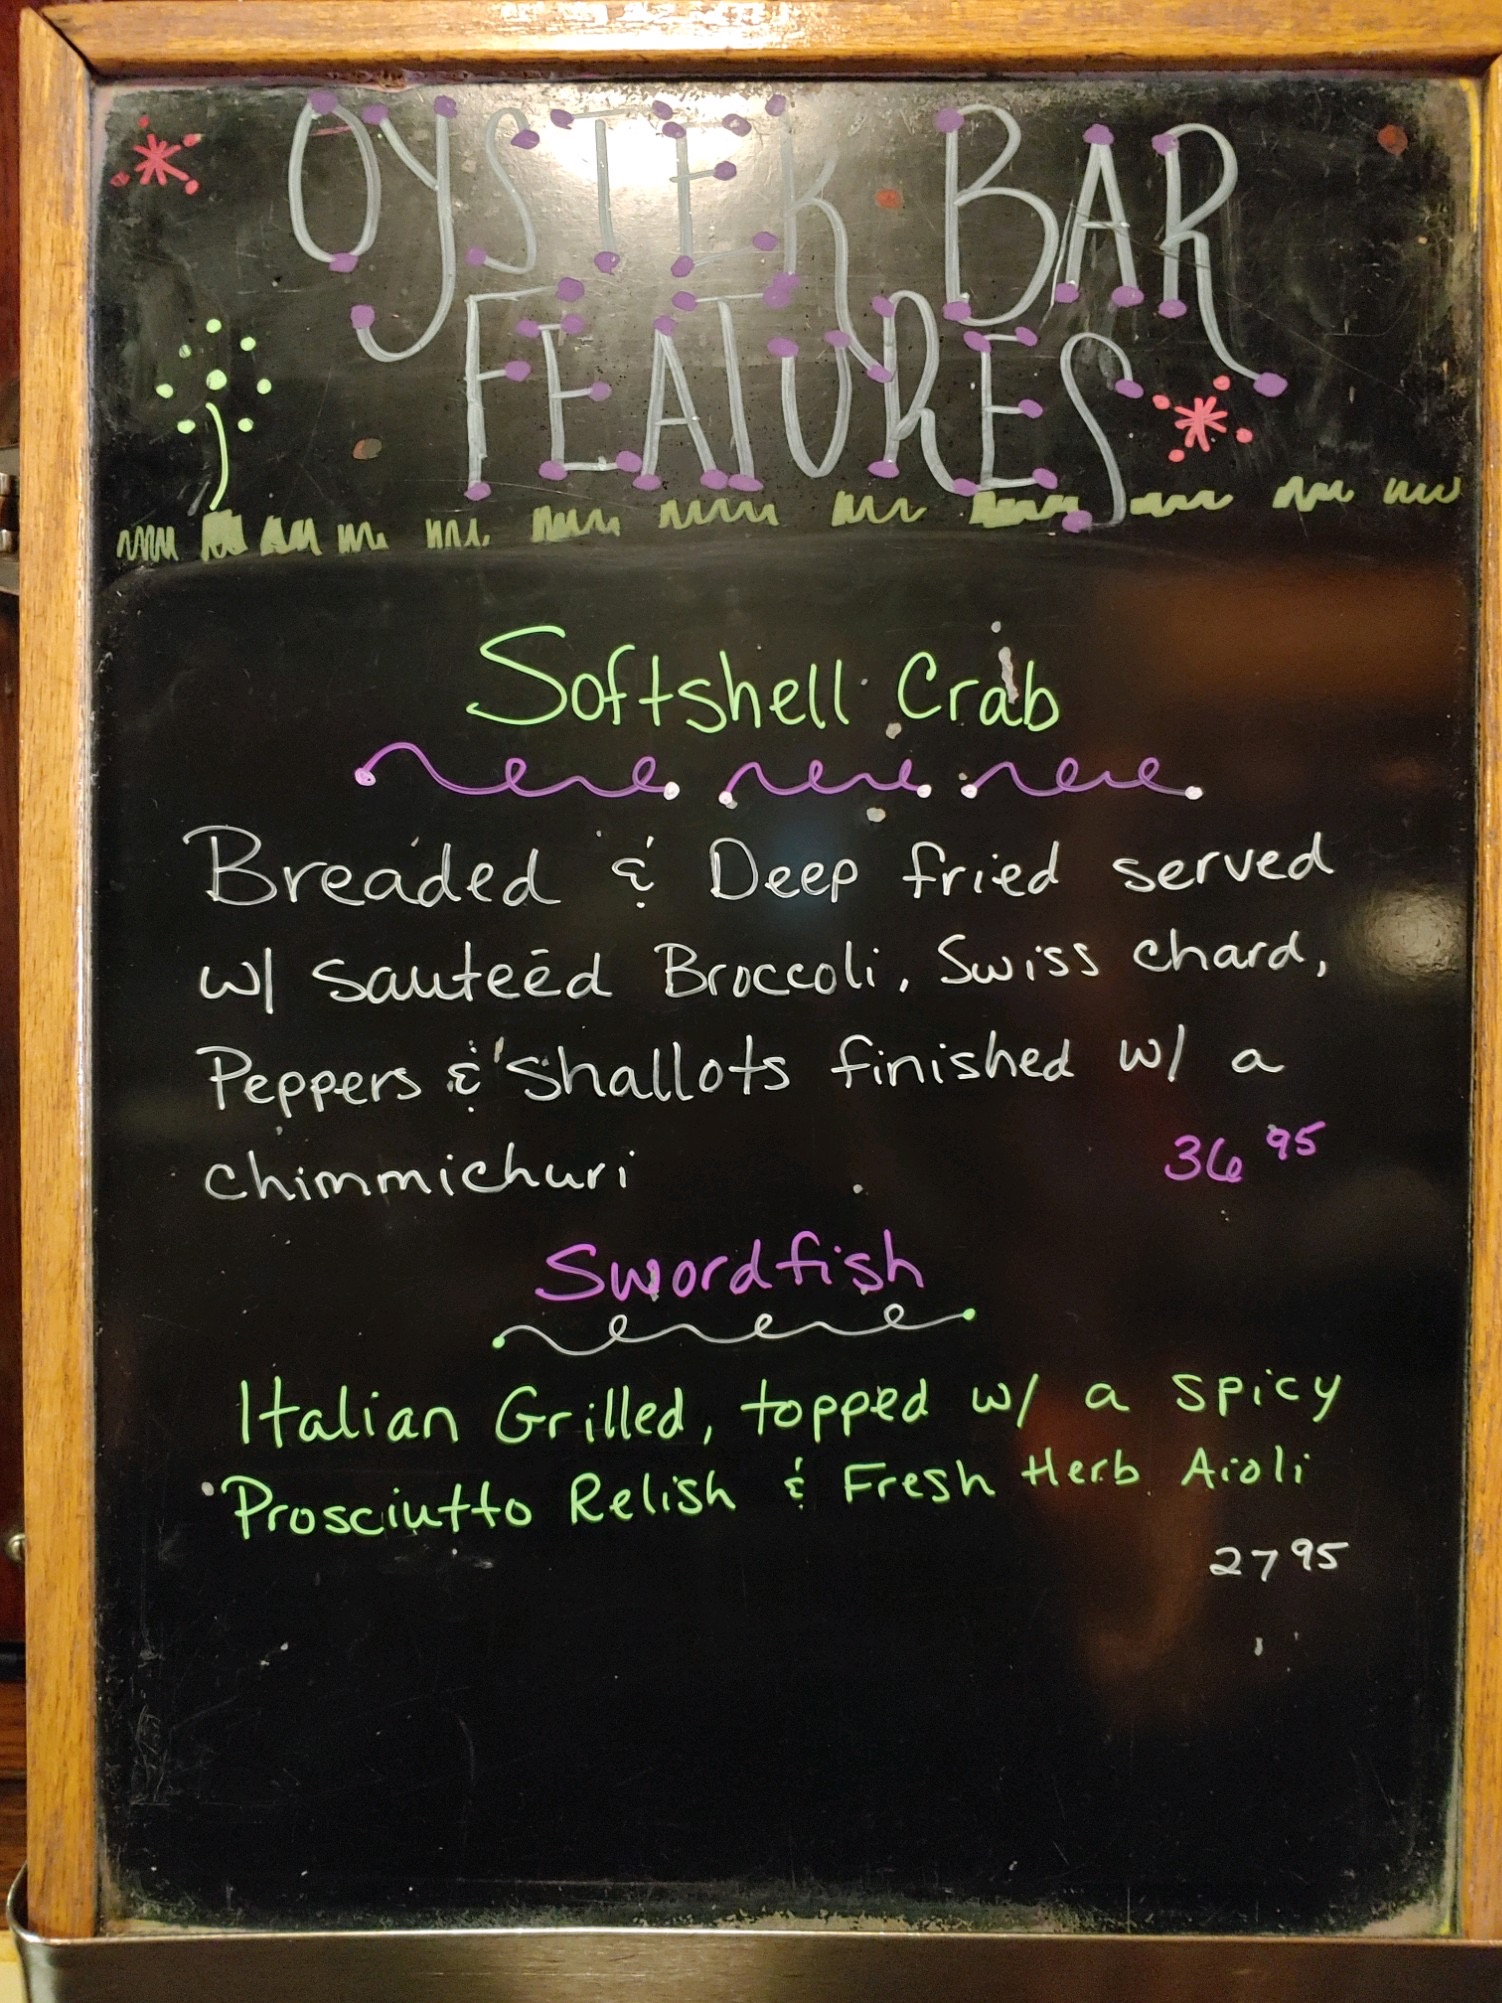 OYSTER BAR
FEATURES
Softshell Crab
Breaded & Deep fried served
w/ sauteéd Broccoli, Swiss chard,
Peppers & Shallots finished w/ a
chimmichuri 36 95
Swordfish
Italian Grilled, topped w/ a spicy
Prosciutto Relish & Fresh Herb Aioli
27 95